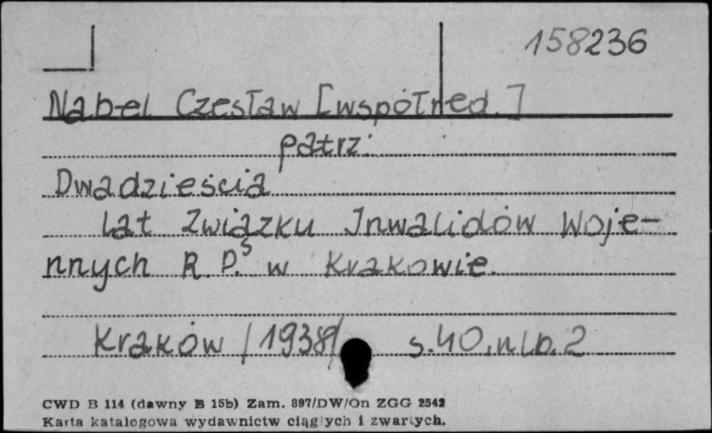 158236
Nabel Czesław [współred.]
patrz:
Dwadzieścia
Lat Związku Inwalidów Woje-
nnych R.P. w Krakowie.
Kraków /1938/ s. 40, nlb. 2
CWD B 114 (dawny B 15b) Zam. 897/DW/On ZGG 2542
Karta katalogowa wydawnictw ciągłych i zwartych.